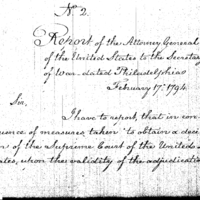 No. 2.
Report of the Attorney General
of the United States to the Secretar
of War - dated Philadelphia
February 17th 1794.
Sir,
I have to report, that in con
quence of measures taken to obtain a deci
n of the Supreme Court of the United S
ates, upon the validity of the adjudication